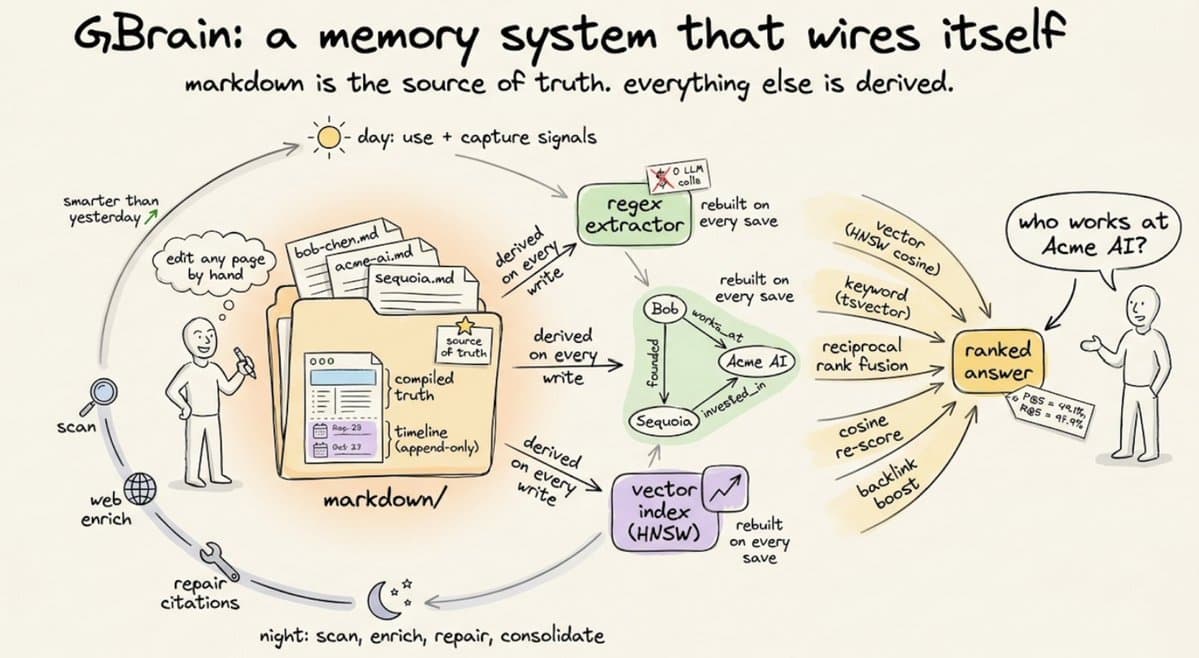 GBrain: a memory system that wires itself
markdown is the source of truth. everything else is derived.
day: use + capture signals
smarter than
yesterday
edit any page
by hand
bob-chen.md
acme-ai.md
sequoia.md
source
of truth
compiled
truth
Aug. 29
Oct 23
timeline
(append-only)
markdown/
scan
web
enrich
repair
citations
night: scan, enrich, repair, consolidate
derived
on every
write
derived
on every
write
derived
on every
write
$ 0 LLM
calls
regex
extractor
rebuilt on
every save
rebuilt on
every save
Bob
works_at
founded
Acme AI
Sequoia
invested_in
vector
index
(HNSW)
rebuilt
on every
save
vector
(HNSW cosine)
keyword
(tsvector)
reciprocal
rank fusion
cosine
re-score
backlink
boost
ranked
answer
P@5 = 49.1%,
R@5 = 97.9%
who works at
Acme AI?